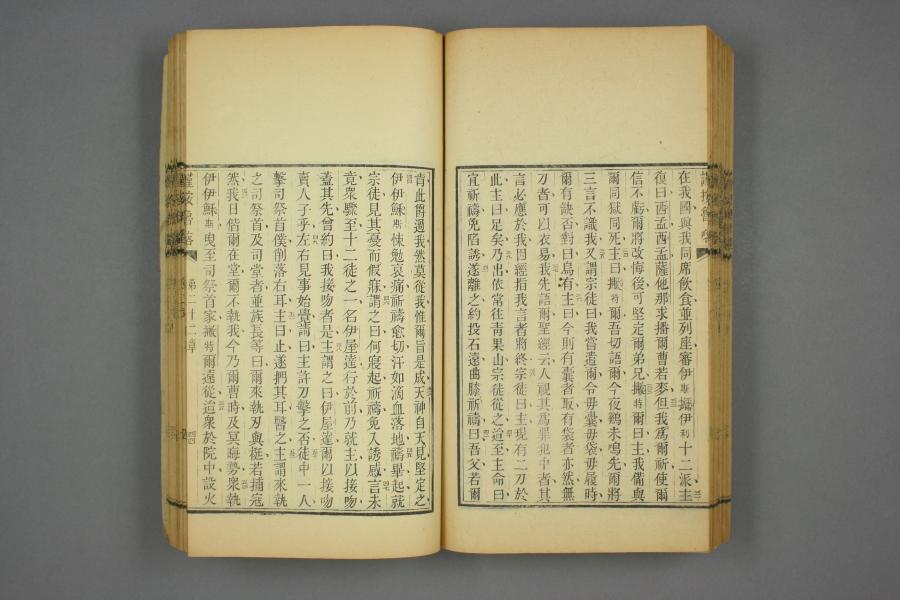 在我國與我同席飲食並列座審伊斯㘔伊利十二派主
復曰西孟西孟薩他那求播爾曹若麥但我爲爾祈使爾
信不虧爾將改悔後可堅定爾弟兄㘔特爾曰主我備與
爾同獄同死主曰㘔特爾吾切語爾今夜鷄未鳴先爾將
三言不識我又謂宗徒曰我嘗遣爾今毋囊毋袋毋履時
爾有缺否對曰烏有主曰今則有囊者取有袋者亦然無
刀者可以衣易我先語爾聖經云人視其爲罪犯中者其
言必應於我因經指我言者將終宗徒曰主現有二刀於
此主曰足矣乃出依常往靑果山宗徒從之迨至主命曰
宜祈禱免陷誘遂離之約投石遠曲膝祈禱曰吾父若爾
肯此爵過我然莫從我惟爾旨是成天神自天見堅定之
伊伊穌斯悚勉哀痛祈禱愈切汗如滴血落地禱畢起就
宗徒見其憂而假寐謂之曰何寢起祈禱免入誘惑言未
竟衆驟至十二徒之一名伊屋達行於前乃就主以接吻
蓋其先曾約曰我接吻者是主謂之曰伊屋達爾以接吻
賣人子乎左右見事始覺請曰主許刀擊之否徒中一人
擊司祭首僕削落右耳主曰止遂捫其耳醫之主謂來執
之司祭首及司堂者並族長等曰爾來執刀與梃若捕寇
然我日偕爾在堂爾不執我今乃爾曹時及冥晦勢衆執
伊伊穌斯曳至司祭首家㘔特爾遠從迨衆於院中設火
第二十二章